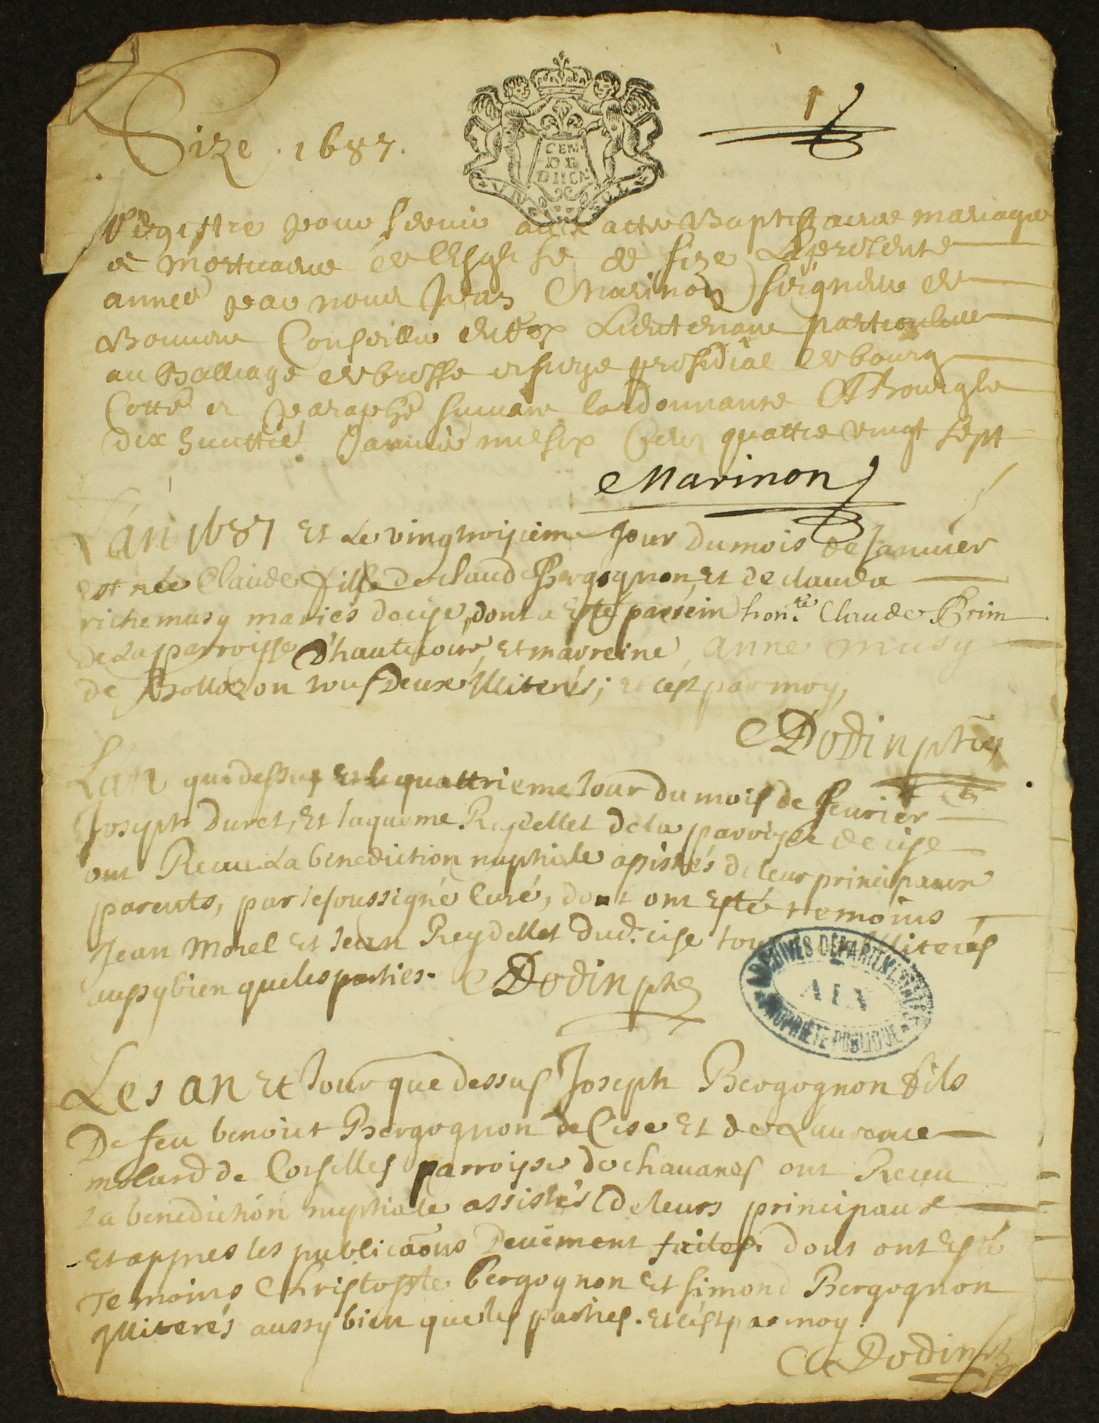 Size . 1687.
1
GEN
DE
DIION
Registre pour servir aux actes Baptistaire mariage
et Mortuaire de lEglise de Size La presente
annee par nous Jean Marinon seigneur de
Conseiller du Roy Lieutenant particulier
au Balliage de bresse et siege presidial de bourg
Cotté et paraphé suivant lordonnance A Bourg le
dix huictie Janvier mil six Cens quattre vingt sept
Marinon
Lan 1687 Et Le vingtroisieme Jour du mois de Janvier
est née Claude fille de claude Bergognon Et de clauda
richemusy mariés de cise, dont a Esté parrein hon.te Claude Brim
de La parroisse D'hautecour, Et marreine, Anne musy
de Bollozon tous Deux Illiterés; et cest par moy,
Dodin ptre
Lan que dessus Et le quattrieme Jour du mois de fevrier
Joseph Duret, Et Jaqueme Reydellet de la parroisse de cise
ont Receu La benediction nuptiale assistés de leur principaux
parents, par le soussigné Curé, dont ont Esté temoins
Jean Morel Et Jean Reydellet dud. cise tous Illiterés
aussy bien que les parties. Dodin ptre
ARCHIVES DEPARTEMENTALES
AIN
PROPRIÉTÉ PUBLIQUE
Les an Et Jour que dessus Joseph Bergognon fils
De feu benoist Bergognon de Cise Et de Laurence
molard de Corselles parroisse de chavanes ont Receu
La benediction nuptiale assistés de leurs principaux
Et appres les publicaõns Deuement faites. dont ont Esté
Temoins Christophle bergognon Et simond Bergognon
Illiterés aussy bien que les parties. Et cest par moy
Dodin ptre